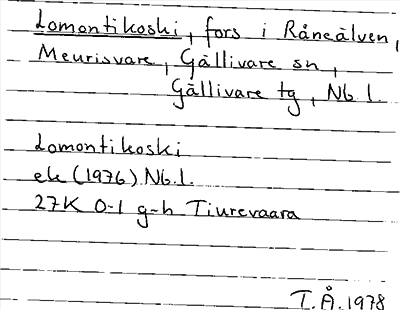 Lomontikoski, fors i Råneälven,
Meurisvare, Gällivare sn,
Gällivare tg, Nb. l.
Lomontikoski
ek (1976) Nb. l.
27K 0-1 g-h Tiurevaara
T.Å. 1978